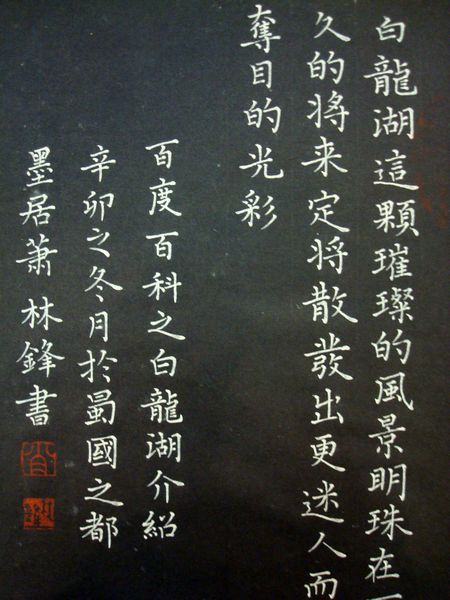 白龍湖這顆璀璨的風景明珠在
久的将来定将散發出更迷人而
奪目的光彩
百度百科之白龍湖介紹
辛卯之冬月於蜀國之都
墨居蕭林鋒書